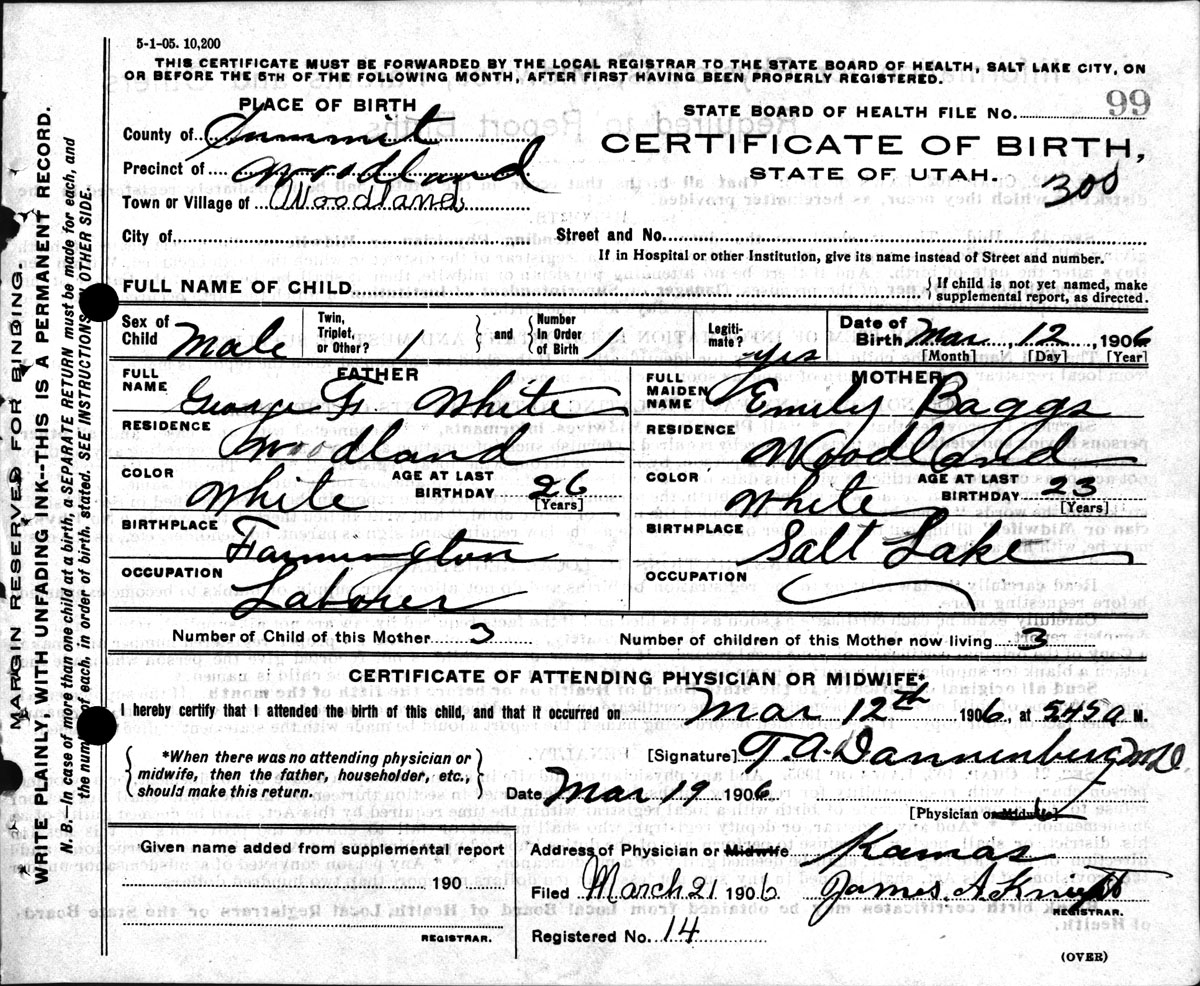 5-1-05. 10,200
THIS CERTIFICATE MUST BE FORWARDED BY THE LOCAL REGISTRAR TO THE STATE BOARD OF HEALTH, SALT LAKE CITY, ON
OR BEFORE THE 5TH OF THE FOLLOWING MONTH, AFTER FIRST HAVING BEEN PROPERLY REGISTERED.
PLACE OF BIRTH
County of Summit
Precinct of Woodland
Town or Village of Woodland
STATE BOARD OF HEALTH FILE NO. 99
CERTIFICATE OF BIRTH,
STATE OF UTAH.
300
City of Street and No.
If in Hospital or other Institution, give its name instead of Street and number.
FULL NAME OF CHILD { If child is not yet named, make
supplemental report, as directed.
Sex of Child Male
Twin, Triplet, or Other? 1 } and { Number In Order of Birth 1
Legiti- mate? yes
Date of Birth Mar 12, 1906
[Month] [Day] [Year]
FATHER
FULL NAME George F. White
RESIDENCE Woodland
COLOR White AGE AT LAST BIRTHDAY 26 [Years]
BIRTHPLACE Farmington
OCCUPATION Laborer
MOTHER
FULL MAIDEN NAME Emily Baggs
RESIDENCE Woodland
COLOR White AGE AT LAST BIRTHDAY 23 [Years]
BIRTHPLACE Salt Lake
OCCUPATION
Number of Child of this Mother 3 Number of children of this Mother now living 3
CERTIFICATE OF ATTENDING PHYSICIAN OR MIDWIFE*
I hereby certify that I attended the birth of this child, and that it occurred on Mar 12th 1906, at 545 a M.
{ *When there was no attending physician or
midwife, then the father, householder, etc.,
should make this return. }
[Signature] T. A. Dannenberg M.D.
Date Mar 19 1906
[Physician or Midwife]
Given name added from supplemental report
190
REGISTRAR.
Address of Physician or Midwife Kamas
Filed March 21 1906 James. A. Knight
REGISTRAR.
Registered No. 14
(OVER)
MARGIN RESERVED FOR BINDING.
WRITE PLAINLY, WITH UNFADING INK--THIS IS A PERMANENT RECORD.
N. B.—In case of more than one child at a birth, a SEPARATE RETURN must be made for each, and
the number of each, in order of birth, stated. SEE INSTRUCTIONS OTHER SIDE.